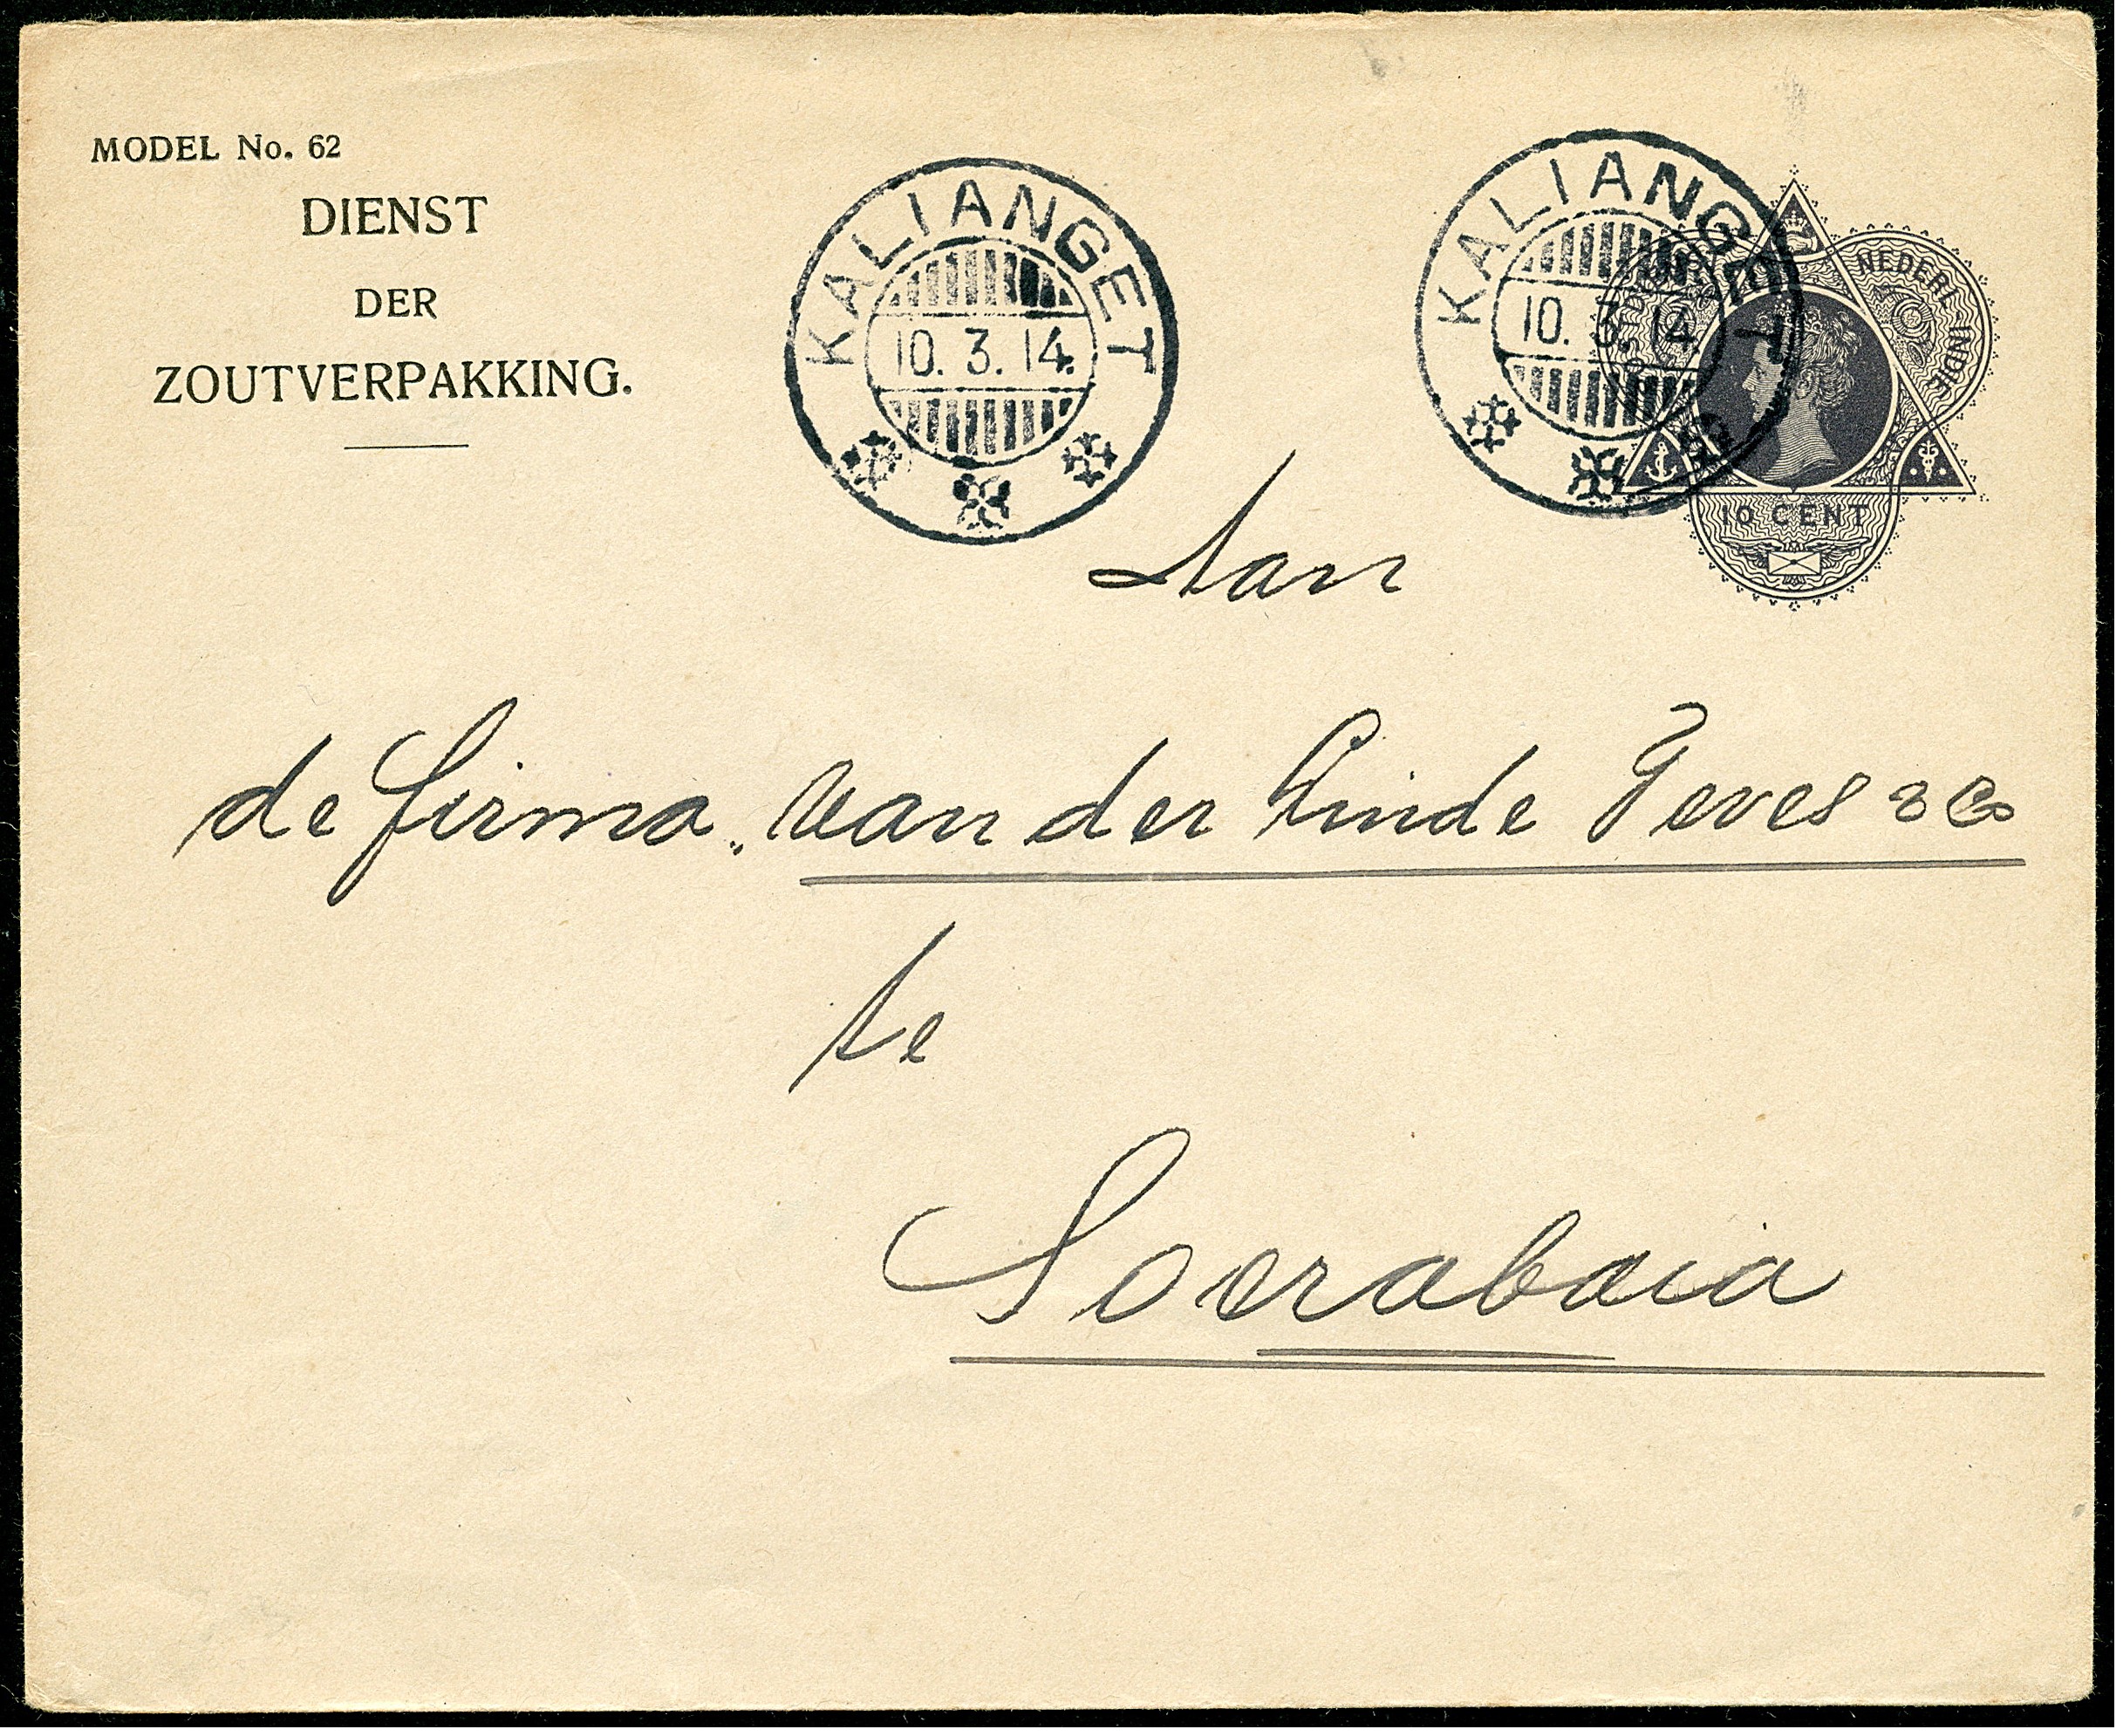 MODEL No. 62
DIENST
DER
ZOUTVERPAKKING.
KALIANGET
10.3.14.
KALIANGET
10.3.14
NEDERL INDIE
10 CENT
Aan
de firma „van der Linde Teves & Co
te
Soerabaia